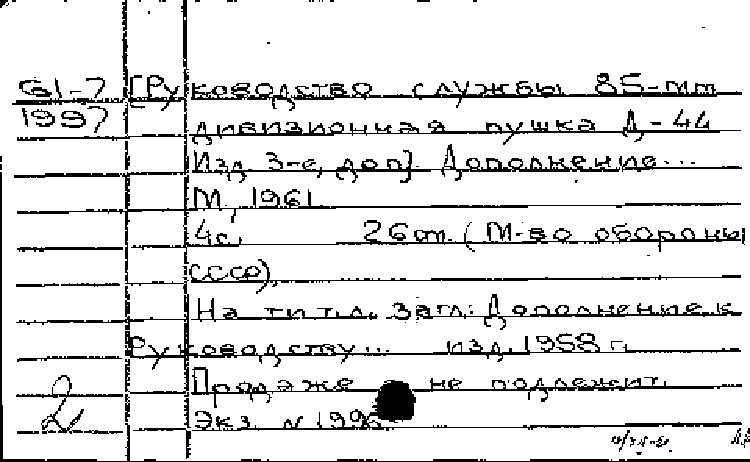 61-7
1997
[Руководство службы 85-мм
дивизионная пушка Д-44
Изд. 3-е, доп]. Дополнение...
М, 1961
4с. 26 см. (М-во обороны
СССР).
На тит.л. загл.: Дополнение к
Руководству... изд. 1958 г.
Продаже не подлежит.
Экз. N 1996
2